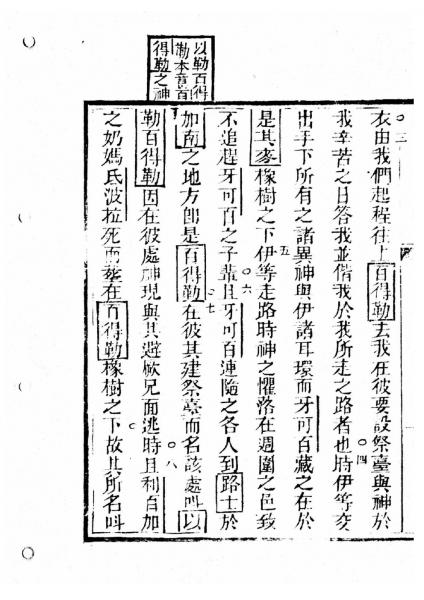 以勒百得
勒本音首
得勒之神
衣由我們起程往上百得勒去我在彼要設祭臺與神於
我辛苦之日答我並偕我於我所走之路者也時伊等交
出手下所有之諸異神與伊諸耳環而牙可百藏之在於
是其麥橡樹之下伊等走路時神之懼落在週圍之色致
不追趕牙可百之子輩且牙可百連隨之各人到路士於
加南之地方卽是百得勒在彼其建祭臺而名該處呌以
勒百得勒因在彼處神現與其避厥兄面逃時且利百加
之奶媽氐波拉死而葬在百得勒橡樹之下故其所名呌
三
四
五
六
七
八